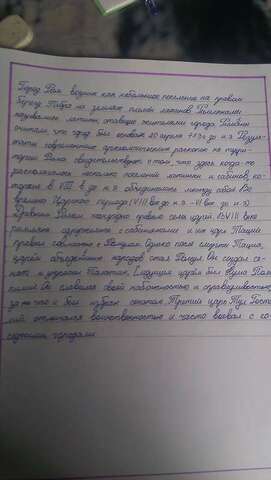 Город Рим возник как небольшое поселение на правом
берегу Тибра на землях племён латинов. Римлянами
назывались латины, ставшие жителями города. Римляне
считали, что город был основан 20 апреля 753г. до н.э. Резуль-
таты современных археологических раскопок на терри-
тории Рима свидетельствуют о том, что здесь когда-то
располагалось несколько поселений латинян и сабинов, ко-
торые в VIII в. до н.э. объединились между собой. Во
времена Царского периода (VIII век до н.э. - VI век до н.э.)
Древним Римом поочерёдно правило семь царей. В VIII веке
римляне с сабинянами и их царь Таций
правил совместно с Ромулом. Однако после смерти Тация,
царём объединённых народов стал Ромул. Он создал се-
нат и укрепил Палатин. Следующим царём был Нума Пом-
пилий. Он славился своей набожностью и справедливостью,
за что и был избран сенатом. Третий царь Тул Гости-
лий отличался воинственностью и часто воевал с со-
седними городами.